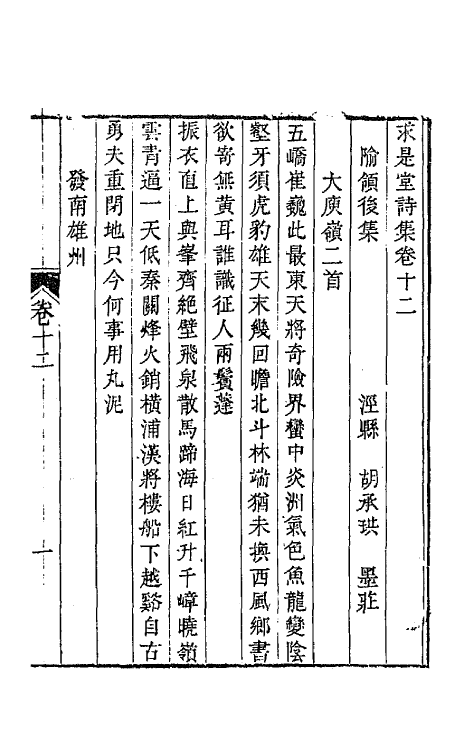 求是堂詩集卷十二
隃領後集 涇縣 胡承珙 墨莊
大庾嶺二首
五嶠崔巍此最東天將奇險界蠻中炎洲氣色魚龍變陰
壑牙須虎豹雄天末幾回瞻北斗林端猶未換西風鄉書
欲寄無黃耳誰識征人兩鬢蓬
振衣直上與峯齊絶壁飛泉散馬蹄海日紅升千嶂曉嶺
雲青逼一天低秦關烽火銷橫浦漢將樓船下越谿自古
勇夫重閉地只今何事用丸泥
發南雄州
卷十二
一